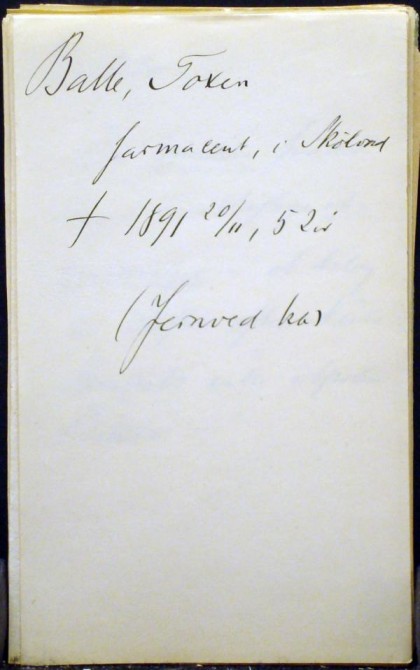 Balle, Toxen
farmaceut, i Skølund
† 1891 20/11, 52 år
(Jernved ka)